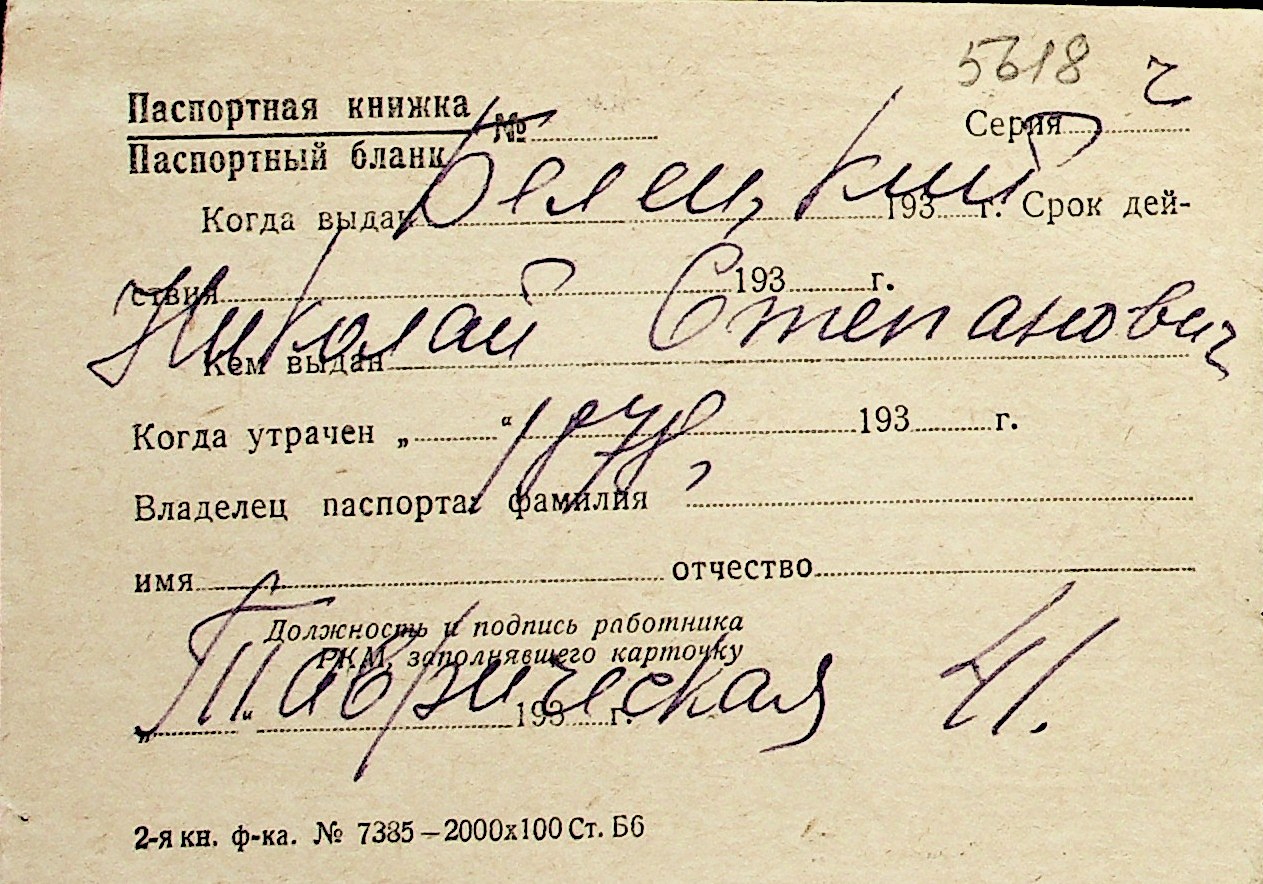 5618 ч
Паспортная книжка
№ Серия
Паспортный бланк
Белецкий
Когда выдан 193 г. Срок дей-
ствия 193 г.
Николай Степанович
Кем выдан
Когда утрачен „ “ 193 г.
1878,
Владелец паспорта: фамилия
имя отчество
Должность и подпись работника
РКМ, заполнявшего карточку
Таврическая 41.
„ “ 193 г.
2-я кн. ф-ка. № 7385—2000х100 Ст. Б6